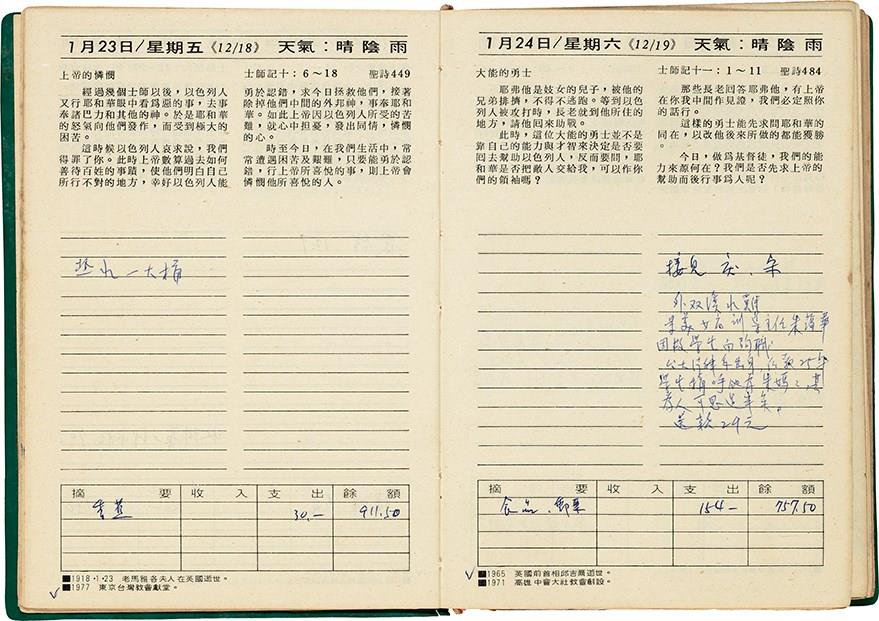 1月23日/星期五《12/18》 天氣：晴陰雨
上帝的憐憫
士師記十：6～18 聖詩449
經過幾個士師以後，以色列人
又行耶和華眼中看爲惡的事，去事
奉諸巴力和其他的神。於是耶和華
的怒氣向他們發作，而受到極大的
困苦。
這時候以色列人哀求說，我們
得罪了你。此時上帝數算過去如何
善待百姓的事蹟，使他們明白自己
所行不對的地方，幸好以色列人能
勇於認錯，求今日拯救他們，接著
除掉他們中間的外邦神，事奉耶和
華。如此上帝因以色列人所受的苦
難，就心中担憂，發出同情，憐憫
的心。
時至今日，在我們生活中，常
常遭遇困苦及艱難，只要能勇於認
錯，行上帝所喜悅的事，則上帝會
憐憫他所喜悅的人。
一大桶
摘要 收入 支出 餘額
30.— 911.50
■1918·1·23 老馬雅各夫人在英國逝世。
■1977 東京台灣教會獻堂。
1月24日/星期六《12/19》 天氣：晴陰雨
大能的勇士
士師記十一：1～11 聖詩484
耶弗他是妓女的兒子，被他的
兄弟排擠，不得不逃跑。等到以色
列人被攻打時，長老就到他所住的
地方，請他回來助戰。
此時，這位大能的勇士並不是
靠自己的能力與才智來決定是否要
回去幫助以色列人，反而要問，耶
和華是否把敵人交給我，可以作你
們的領袖嗎？
那些長老回答耶弗他，有上帝
在你我中間作見證，我們必定照你
的話行。
這樣的勇士能先求問耶和華的
同在，以致他後來所做的都能獲勝
。
今日，做爲基督徒，我們的能
力來源何在？我們是否先求上帝的
幫助而後行事爲人呢？
接見
外双溪水難
因救學生而殉職
送款29元
摘要 收入 支出 餘額
食品、 154— 757.50
■1965 英國前首相邱吉爾逝世。
■1971 高雄中會大社教會創設。